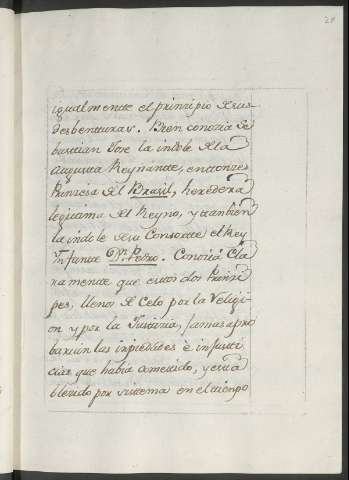 igualmente el principio de sus
desbenturas. Bien conocia Se
bastian Jose la indole de la
Augusta Reynante, entonzes
Princesa del Brasil, heredera
legitima del Reyno, y tambien
la indole de su Consorte el Rey
Ynfante Dn. Pedro. Conocia Cla
ramente que estos dos Princi
pes, llenos de Celo por la Religi
on y por la Justicia, jamas apro
barian las impiedades è injusti
cias que habia cometido, y esta
blecido por sistema en el tiempo